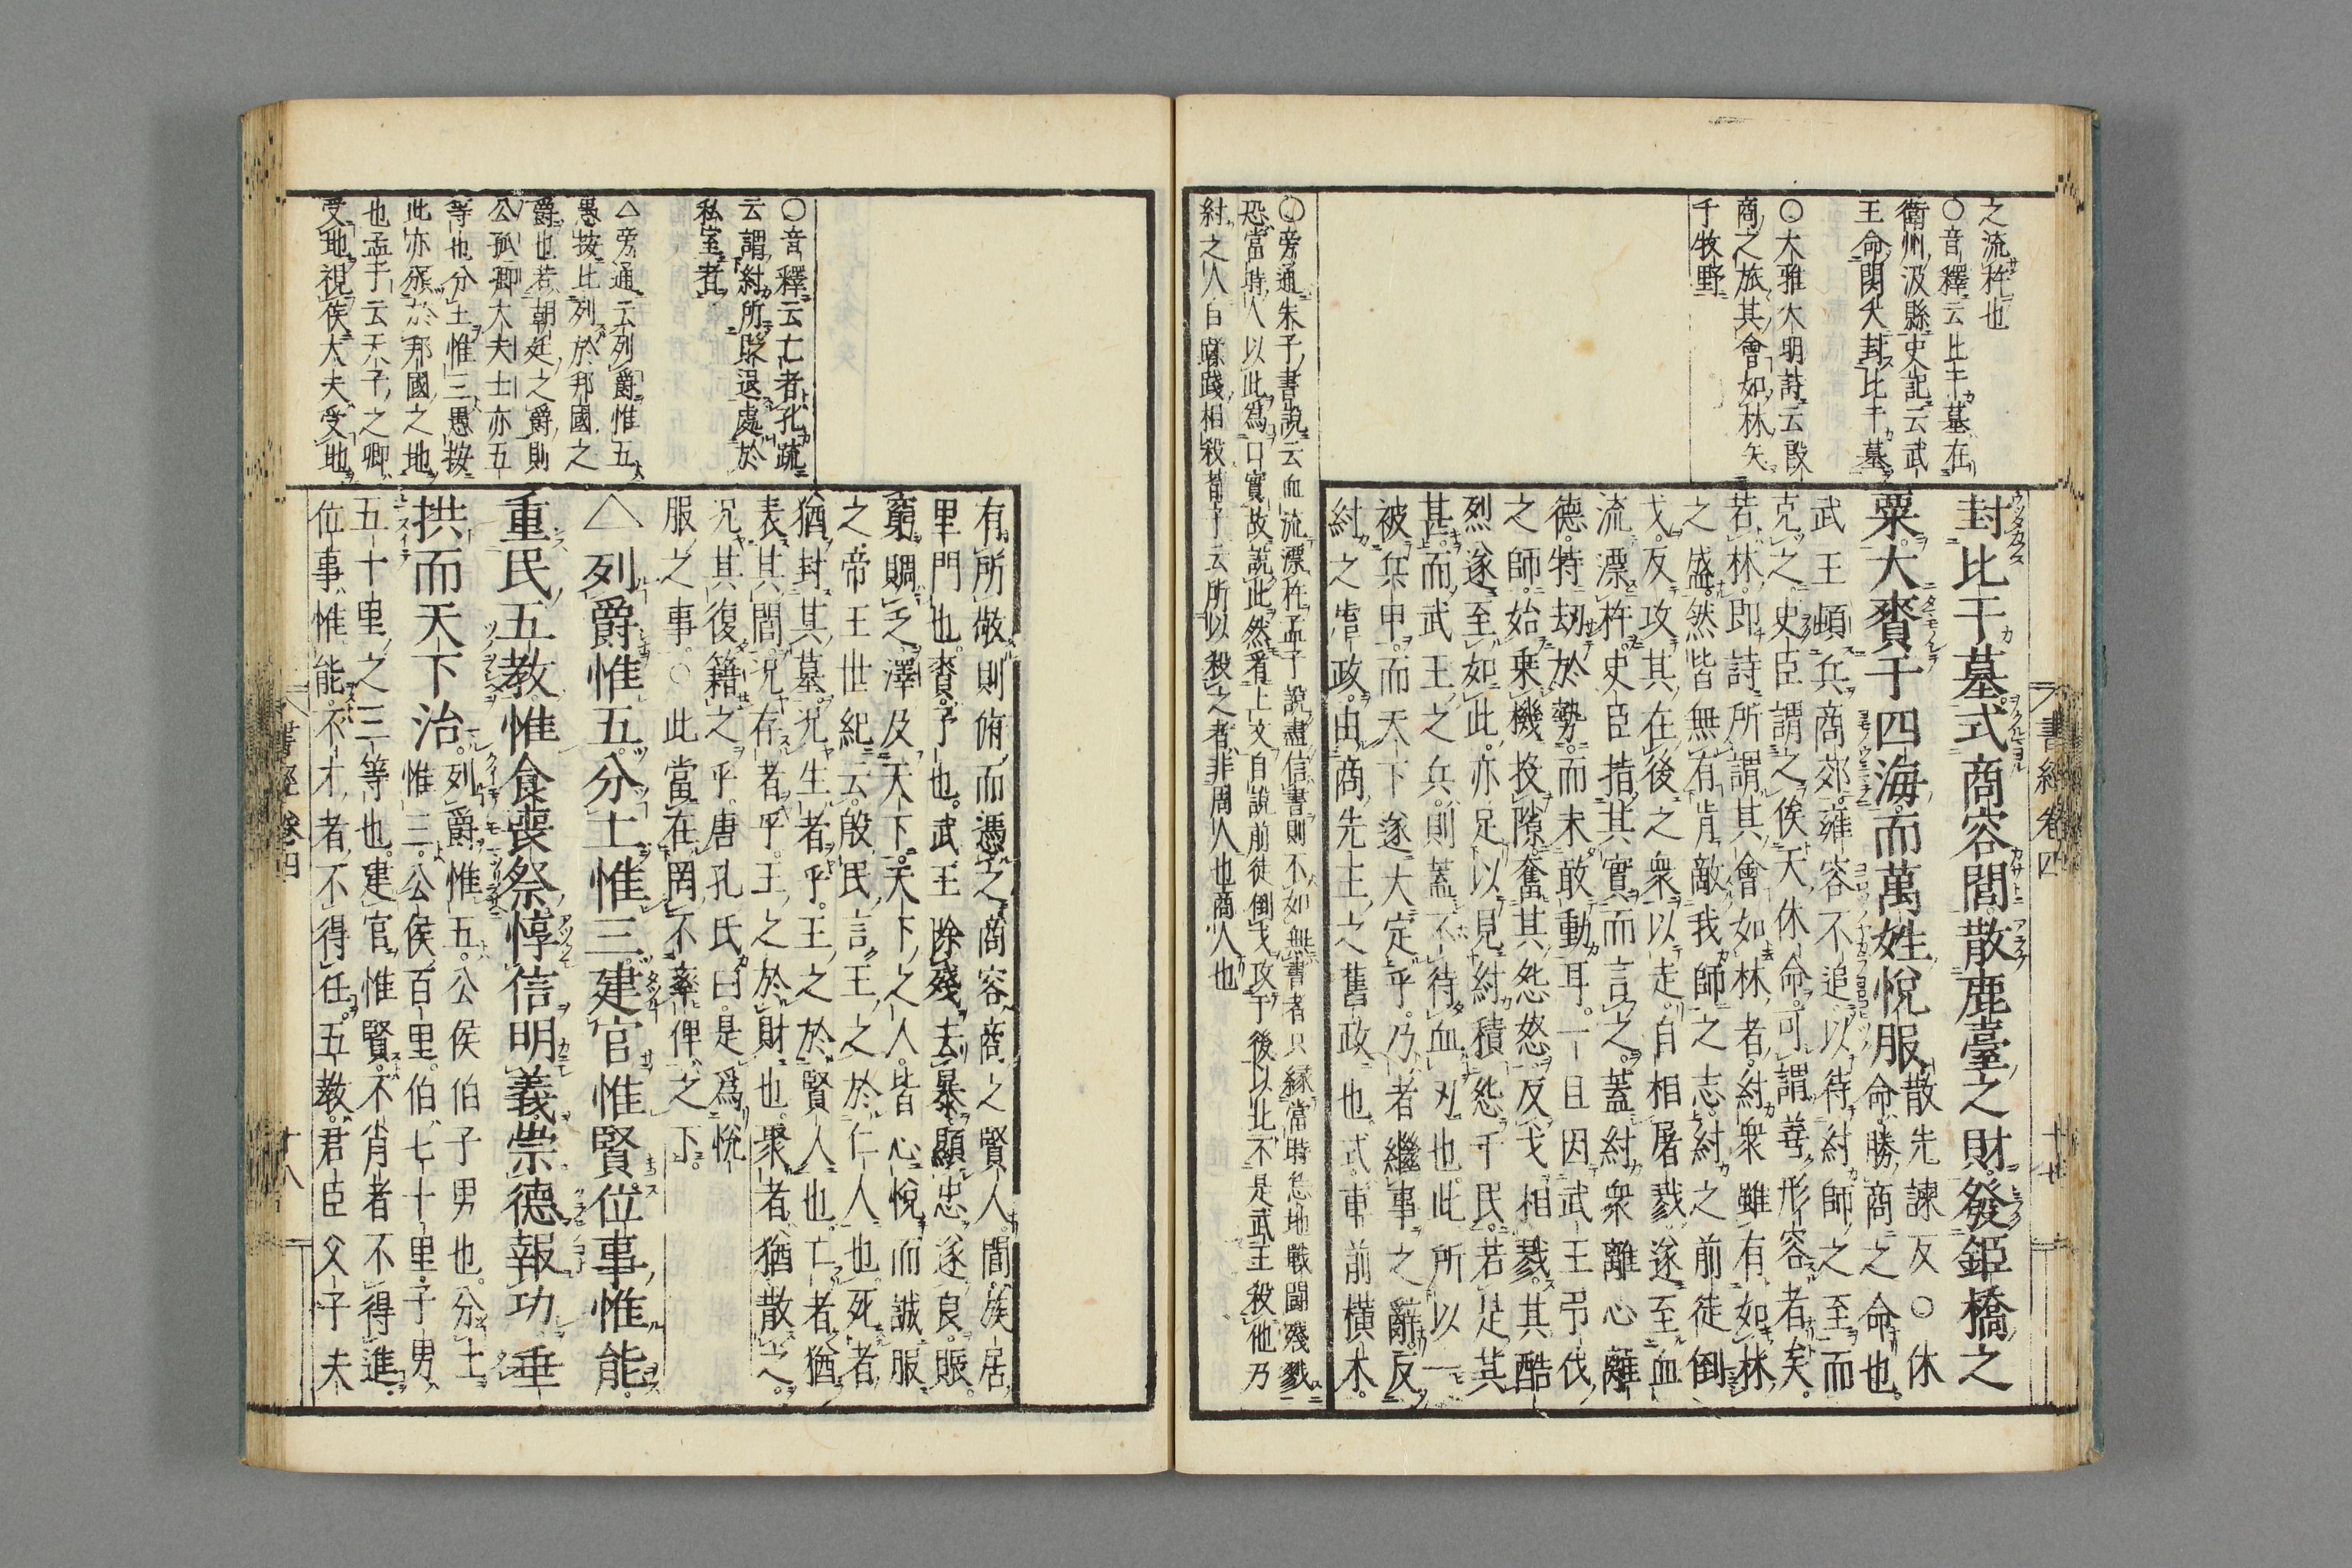 書經卷四
十七
之流杵也
○音釋云比干墓在
衛州汲縣史記云武
王命閎夭封比干墓
○大雅大明詩云殷
商之旅其會如林矢
于牧野
封比干墓式商容閭散鹿臺之財發鉅橋之
粟大賚于四海而萬姓悅服
散先諫反○休
命勝商之命也
武王頓兵商郊雍容不追以待紂師之至而
克之史臣謂之俟天休命可謂善形容者矣
若林即詩所謂其會如林者紂衆雖有如林
之盛然皆無有肯敵我師之志紂之前徒倒
戈反攻其在後之衆以走自相屠戮遂至血
流漂杵史臣指其實而言之蓋紂衆離心離
德特劫於勢而未敢動耳一旦因武王弔伐
之師始乘機投隙奮其怨怒反戈相戮其酷
烈遂至如此亦足以見紂積怨于民若是其
甚而武王之兵則蓋不待血刃也此所以一
被兵甲而天下遂大定乎乃者繼事之辭反
紂之虐政由商先王之舊政也式車前橫木
○旁通朱子書說云血流漂杵孟子說盡信書則不如無書者只緣當時恁地戰鬪殘戮
恐當時人以此爲口實故說此然看上文自說前徒倒戈攻于後以北不是武王殺他乃
紂之人自蹂踐相殺荀子云所以殺之者非周人也商人也
有所敬則俯而憑之商容商之賢人閭族居
里門也賚予也武王除殘去暴顯忠遂良賑
窮賙乏澤及天下天下之人皆心悅而誠服
之帝王世紀云殷民言王之於仁人也死者
猶封其墓況生者乎王之於賢人也亡者猶
表其閭況存者乎王之於財也聚者猶散之
況其復籍之乎唐孔氏曰是爲悅
服之事○此當在罔不率俾之下
○音釋云亡者孔疏
云謂紂所貶退處於
私室者
△列爵惟五分土惟三建官惟賢位事惟能
重民五教惟食喪祭惇信明義崇德報功垂
拱而天下治
列爵惟五公侯伯子男也分土
惟三公侯百里伯七十里子男
五十里之三等也建官惟賢不肖者不得進
位事惟能不才者不得任五教君臣父子夫
△旁通云列爵惟五
愚按比列於邦國之
爵也若朝廷之爵則
公孤卿大夫士亦五
等也分土惟三愚按
此亦頒於邦國之地
也孟子云天子之卿
受地視侯大夫受地
書經卷四
十八